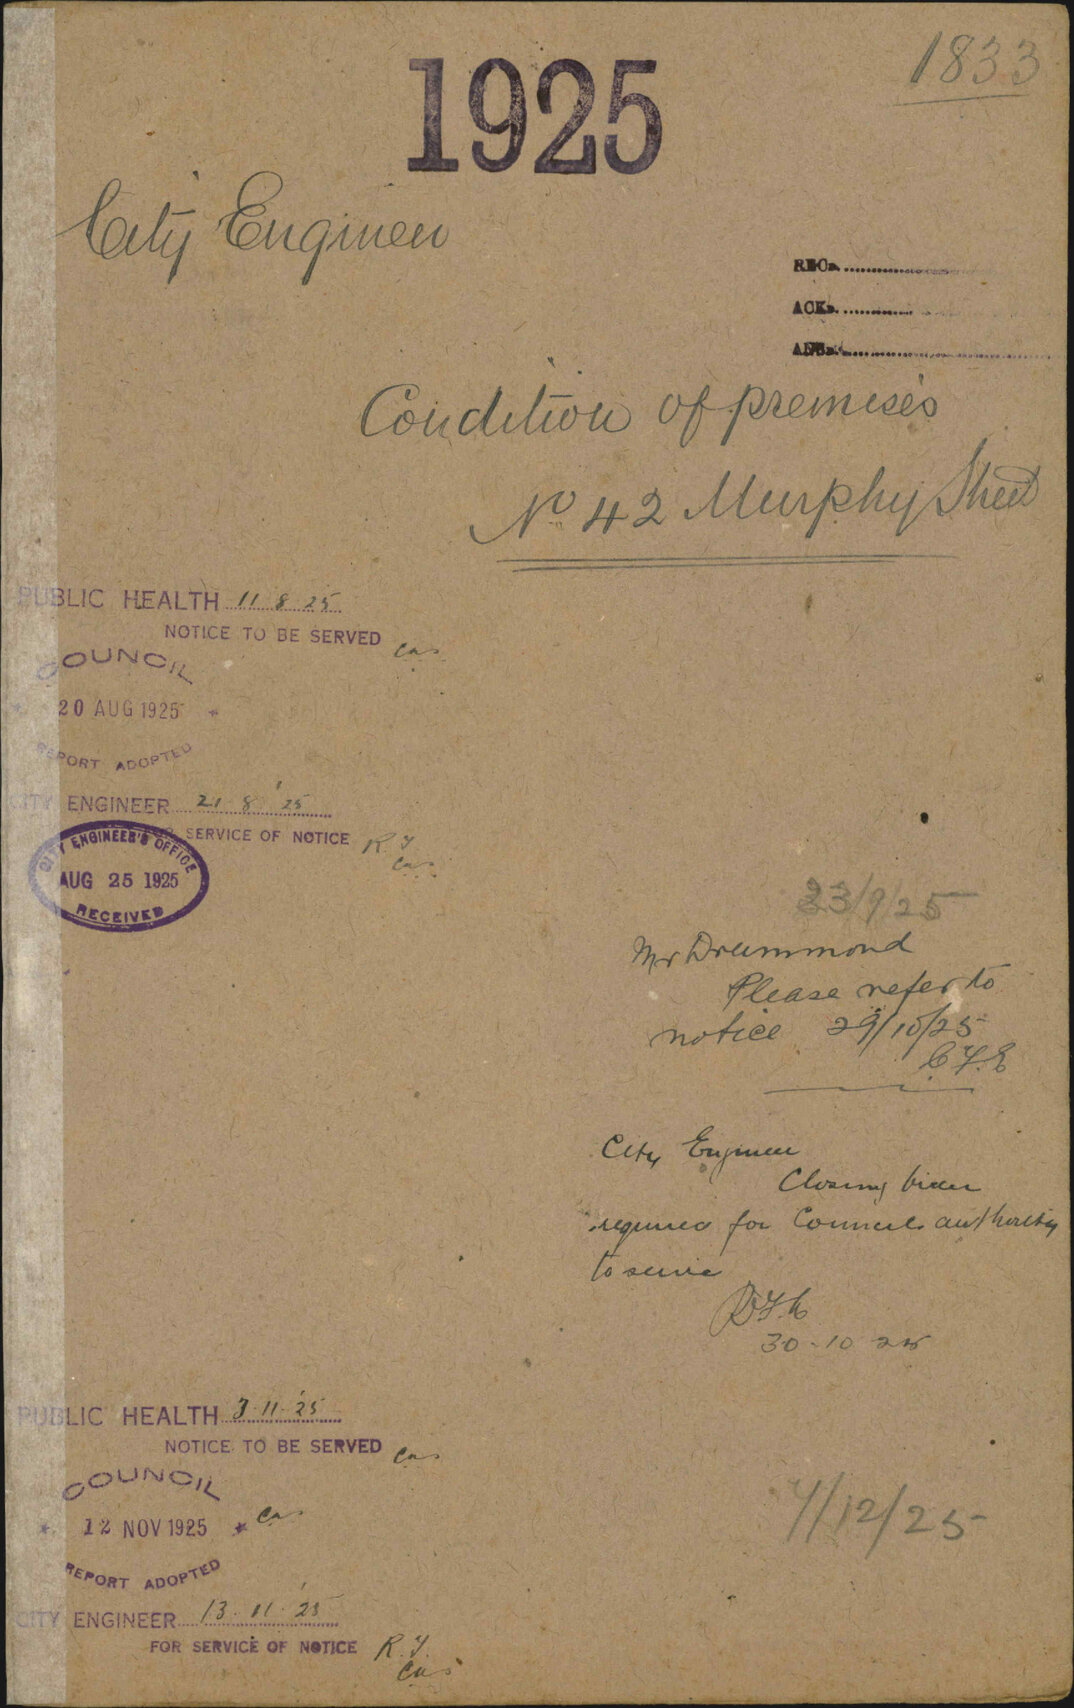 1833
1925
City Engineer
REC.
ACK.
ANS.
Condition of premises
No 42 Murphy Street
PUBLIC HEALTH 11 8 25
NOTICE TO BE SERVED
COUNCIL
20 AUG 1925
REPORT ADOPTED
CITY ENGINEER 21 8 '25
FOR SERVICE OF NOTICE
CITY ENGINEER'S OFFICE
AUG 25 1925
RECEIVED
23/9/25
Mr Drummond
Please refer to
notice 29/10/25
City Engineer
Closing
required for Council authority
to serve
30-10-25
PUBLIC HEALTH 3-11-'25
NOTICE TO BE SERVED
COUNCIL
12 NOV 1925
REPORT ADOPTED
7/12/25
CITY ENGINEER 13-11-'25
FOR SERVICE OF NOTICE